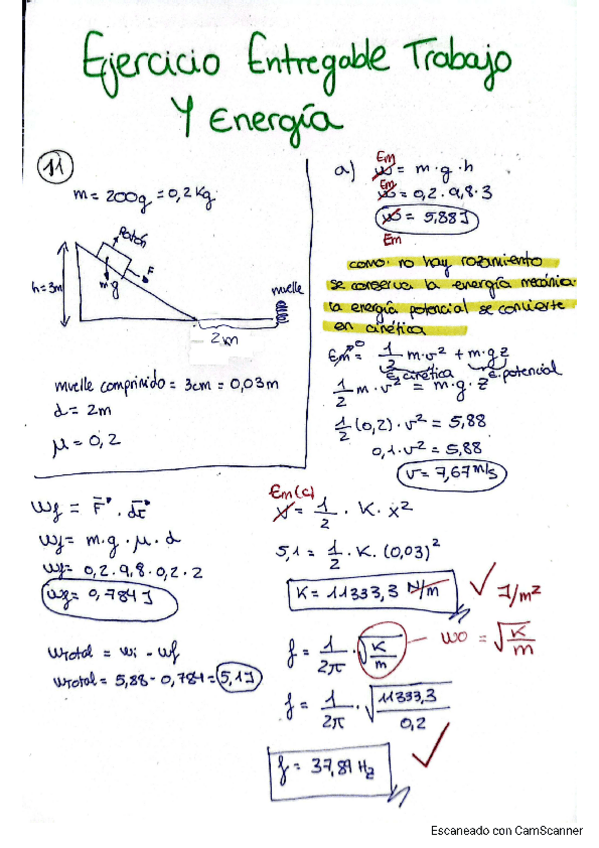 Ejercicio Entregable Trabajo
Y Energía
11
m = 200g = 0,2 Kg
Patín
F
mg
h = 3m
muelle
2 m
muelle comprimido = 3cm = 0,03m
d = 2m
μ = 0,2
a) Em w = m · g · h
Em w = 0,2 · 9,8 · 3
w = 5,88J
Em
como no hay rozamiento
se conserva la energía mecánica
la energía potencial se convierte
en cinética
Em⁰ = 1/2 m · v² + m · g z
E. cinética E. potencial
1/2 m · v² = m · g · z
1/2 (0,2) · v² = 5,88
0,1 · v² = 5,88
v = 7,67 m/s
Wf = F · dr
Wf = m · g · μ · d
Wf = 0,2 · 9,8 · 0,2 · 2
Wf = 0,784 J
WTotal = Wi - Wf
WTotal = 5,88 - 0,784 = 5,1J
Em(c)
= 1/2 · K · x²
5,1 = 1/2 · K · (0,03)²
K = 11333,3 N/m ✓ J/m²
f = 1/2π · √K/m — wo = √K/m
f = 1/2π · √11333,3/0,2
f = 37,89 Hz ✓
Escaneado con CamScanner